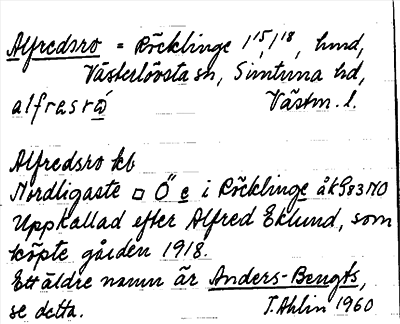 Alfredsro = Röcklinge 1¹⁵, 1¹⁸, hmd,
Västerlövsta sn, Simtuna hd,
alfrasró Västm. l.
Alfredsro kb
Nordligaste □ Ö e i Röcklinge åk983 NO
Uppkallad efter Alfred Eklund, som
köpte gården 1918.
Ett äldre namn är Anders-Bengts,
se detta. T. Ahlin 1960